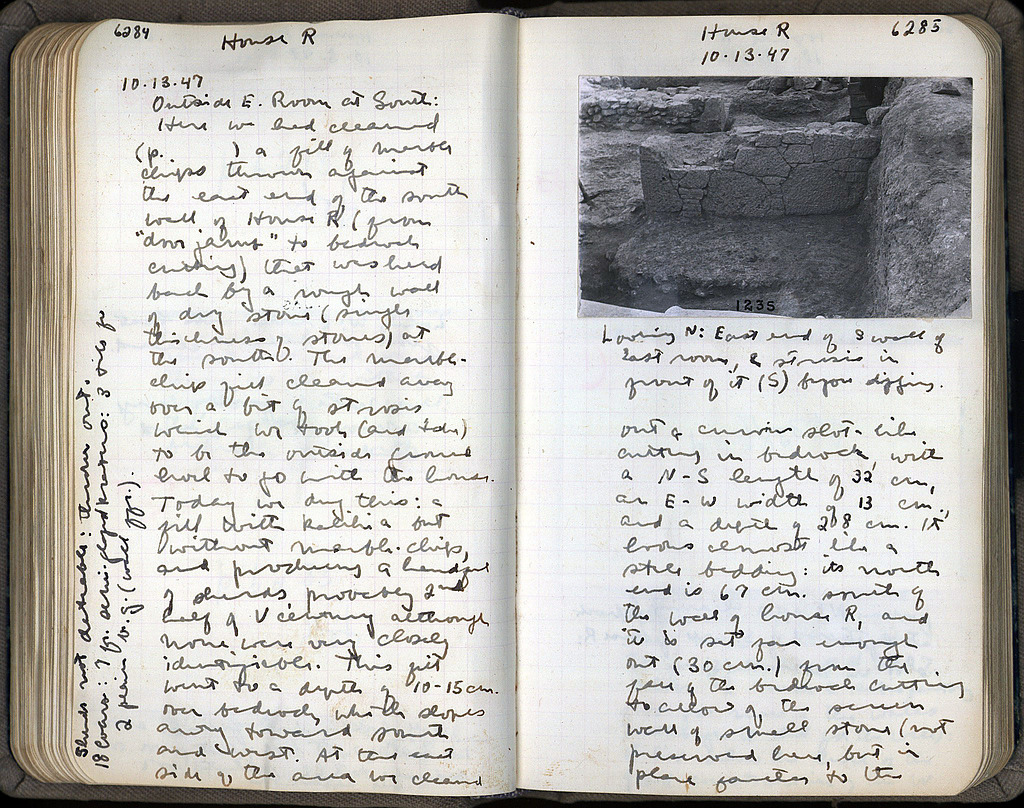 6284
House R
10.13.47
Outside E. Room at South:
Here we had cleaned
(p. ) a fill of marble
chips thrown against
the east end of the south
wall of House R (from
"door jamb" to bedrock
cutting) that was held
back by a rough wall
of dry stone (single
thickness of stones) at
the south. The marble-
chip fill cleaned away
over a bit of strosis
which we took (and take)
to be the outside ground
level to go with the house.
Today we dug this: a
fill with kalikia but
without marble-chips,
and producing a handful
of sherds probably 2nd
half of V century although
none were very closely
identifiable. This fill
went to a depth of 10-15 cm.
over bedrock, which slopes
away toward south
and west. At the east
side of the area we cleaned
Sherds not datable: thrown out.
18 coarse: 7 fr. semi-glazed kraters: 3
2 plain b.g. (wall frr.)
6285
House R
10.13.47
1235
Looking N: East end of S wall of
East room, & strosis in
front of it (S) before digging.
out a curious slot-like
cutting in bedrock, with
a N-S length of 32 cm,
an E-W width of 13 cm.,
and a depth of 28 cm. It
looks almost like a
stele bedding: its north
end is 67 cm. south of
the wall of house R, and
it is set far enough
out (30 cm.) from the
face of the bedrock cutting
to allow of the screen
wall of small stone (not
preserved here, but in
place farther to the